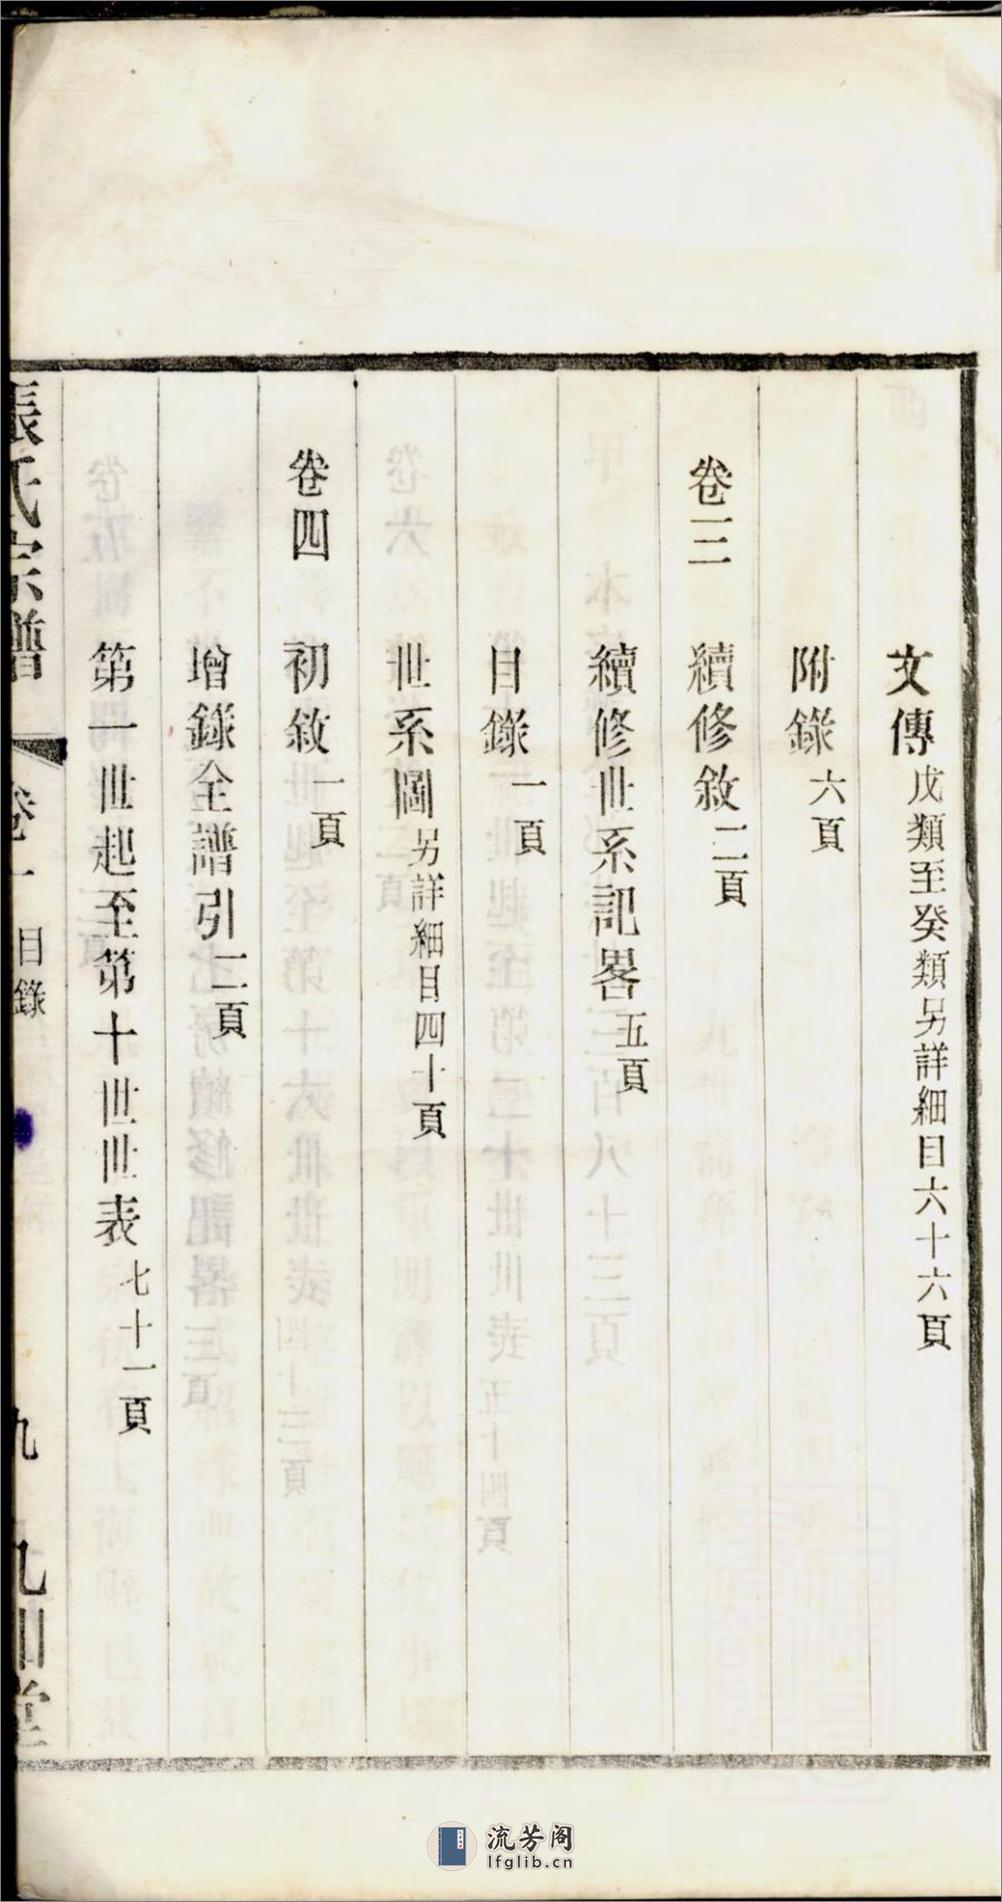 文傳戊類至癸類另詳細目六十六頁
附錄六頁
卷三　續修敘二頁
續修世系記畧五頁
目錄一頁
世系圖另詳細目四十頁
卷四　初敘一頁
增錄全譜引二頁
第一世起至第十世世表七十一頁
張氏宗譜　卷一　目錄　九　堂
流芳阁
lfglib.cn